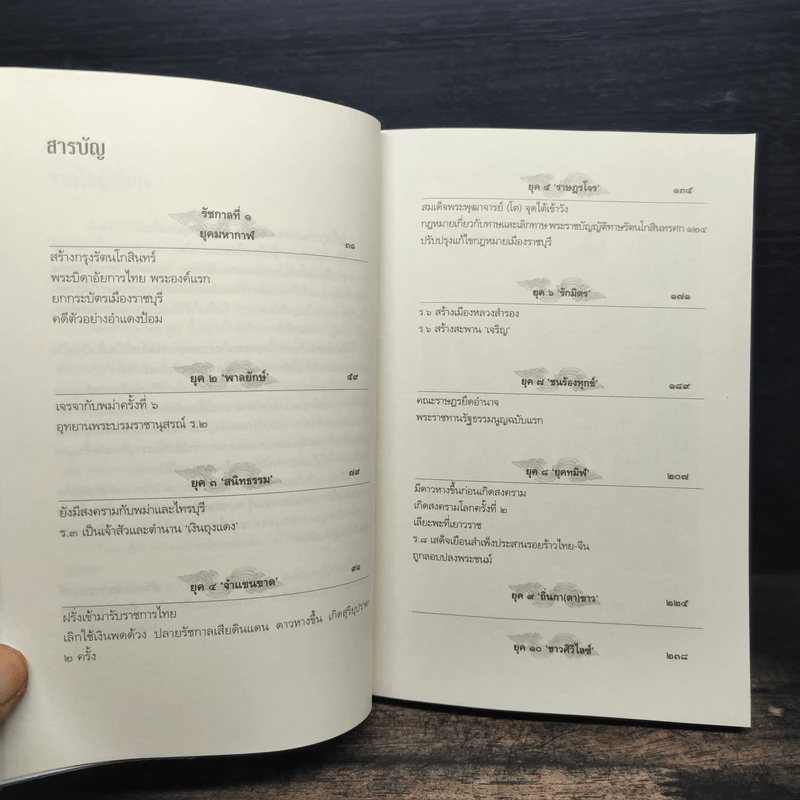 สารบัญ
รัชกาลที่ ๑
ยุคมหากาฬ ๓๑
สร้างกรุงรัตนโกสินทร์
พระบิดาอัยการไทย พระองค์แรก
ยกกระบัตรเมืองราชบุรี
คดีตัวอย่างอำแดงป้อม
ยุค ๒ 'พาลยักษ์' ๕๙
เจรจากับพม่าครั้งที่ ๖
อุทยานพระบรมราชานุสรณ์ ร.๒
ยุค ๓ 'สนิทธรรม' ๗๙
ยังมีสงครามกับพม่าและไทรบุรี
ร.๓ เป็นเจ้าสัวและตำนาน 'เงินถุงแดง'
ยุค ๔ 'จำแขนขาด' ๙๑
ฝรั่งเข้ามารับราชการไทย
เลิกใช้เงินพดด้วง ปลายรัชกาลเสียดินแดน ดาวหางขึ้น เกิดสุริยุปราคา
๒ ครั้ง
ยุค ๕ 'ราษฎรโจร' ๑๓๕
สมเด็จพระพุฒาจารย์ (โต) จุดไต้เข้าวัง
กฎหมายเกี่ยวกับทาสและเลิกทาษ พระราชบัญญัติทาษรัตนโกสินทรศก ๑๒๔
ปรับปรุงแก้ไขกฎหมายเมืองราชบุรี
ยุค ๖ 'รักมิตร' ๑๗๑
ร.๖ สร้างเมืองหลวงสำรอง
ร.๖ สร้างสะพาน 'เจริญ'
ยุค ๗ 'ชนร้องทุกข์' ๑๘๙
คณะราษฎรยึดอำนาจ
พระราชทานรัฐธรรมนูญฉบับแรก
ยุค ๘ 'ยุคทมิฬ' ๒๐๗
มีดาวหางขึ้นก่อนเกิดสงคราม
เกิดสงครามโลกครั้งที่ ๒
เลียะพะที่เยาวราช
ร.๘ เสด็จเยือนสำเพ็งประสานรอยร้าวไทย-จีน
ถูกลอบปลงพระชนม์
ยุค ๙ 'ถิ่นกา(ตา)ขาว' ๒๒๕
ยุค ๑๐ 'ชาวศิวิไลซ์' ๒๓๘